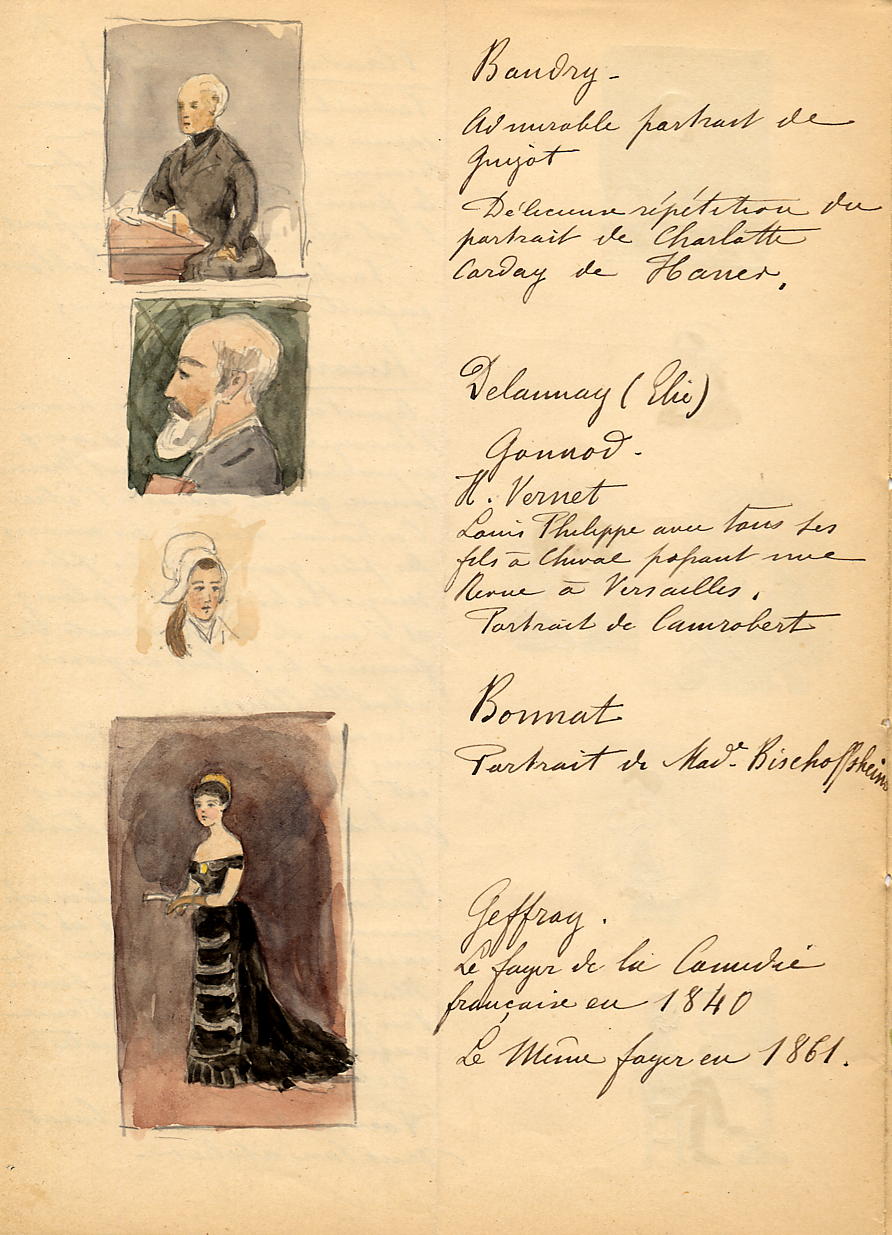 Baudry -
Admirable portrait de
Guizot
Délicieuse répétition du
portrait de Charlotte
Corday de Hauer.
Delaunay (Elie)
Gounod -
H. Vernet
Louis Philippe avec tous ses
fils à cheval passant une
Revue à Versailles.
Portrait de Canrobert
Bonnat
Portrait de Made Bischoffsheim
Geffroy.
Le foyer de la Comédie
française en 1840
Le Même foyer en 1861.